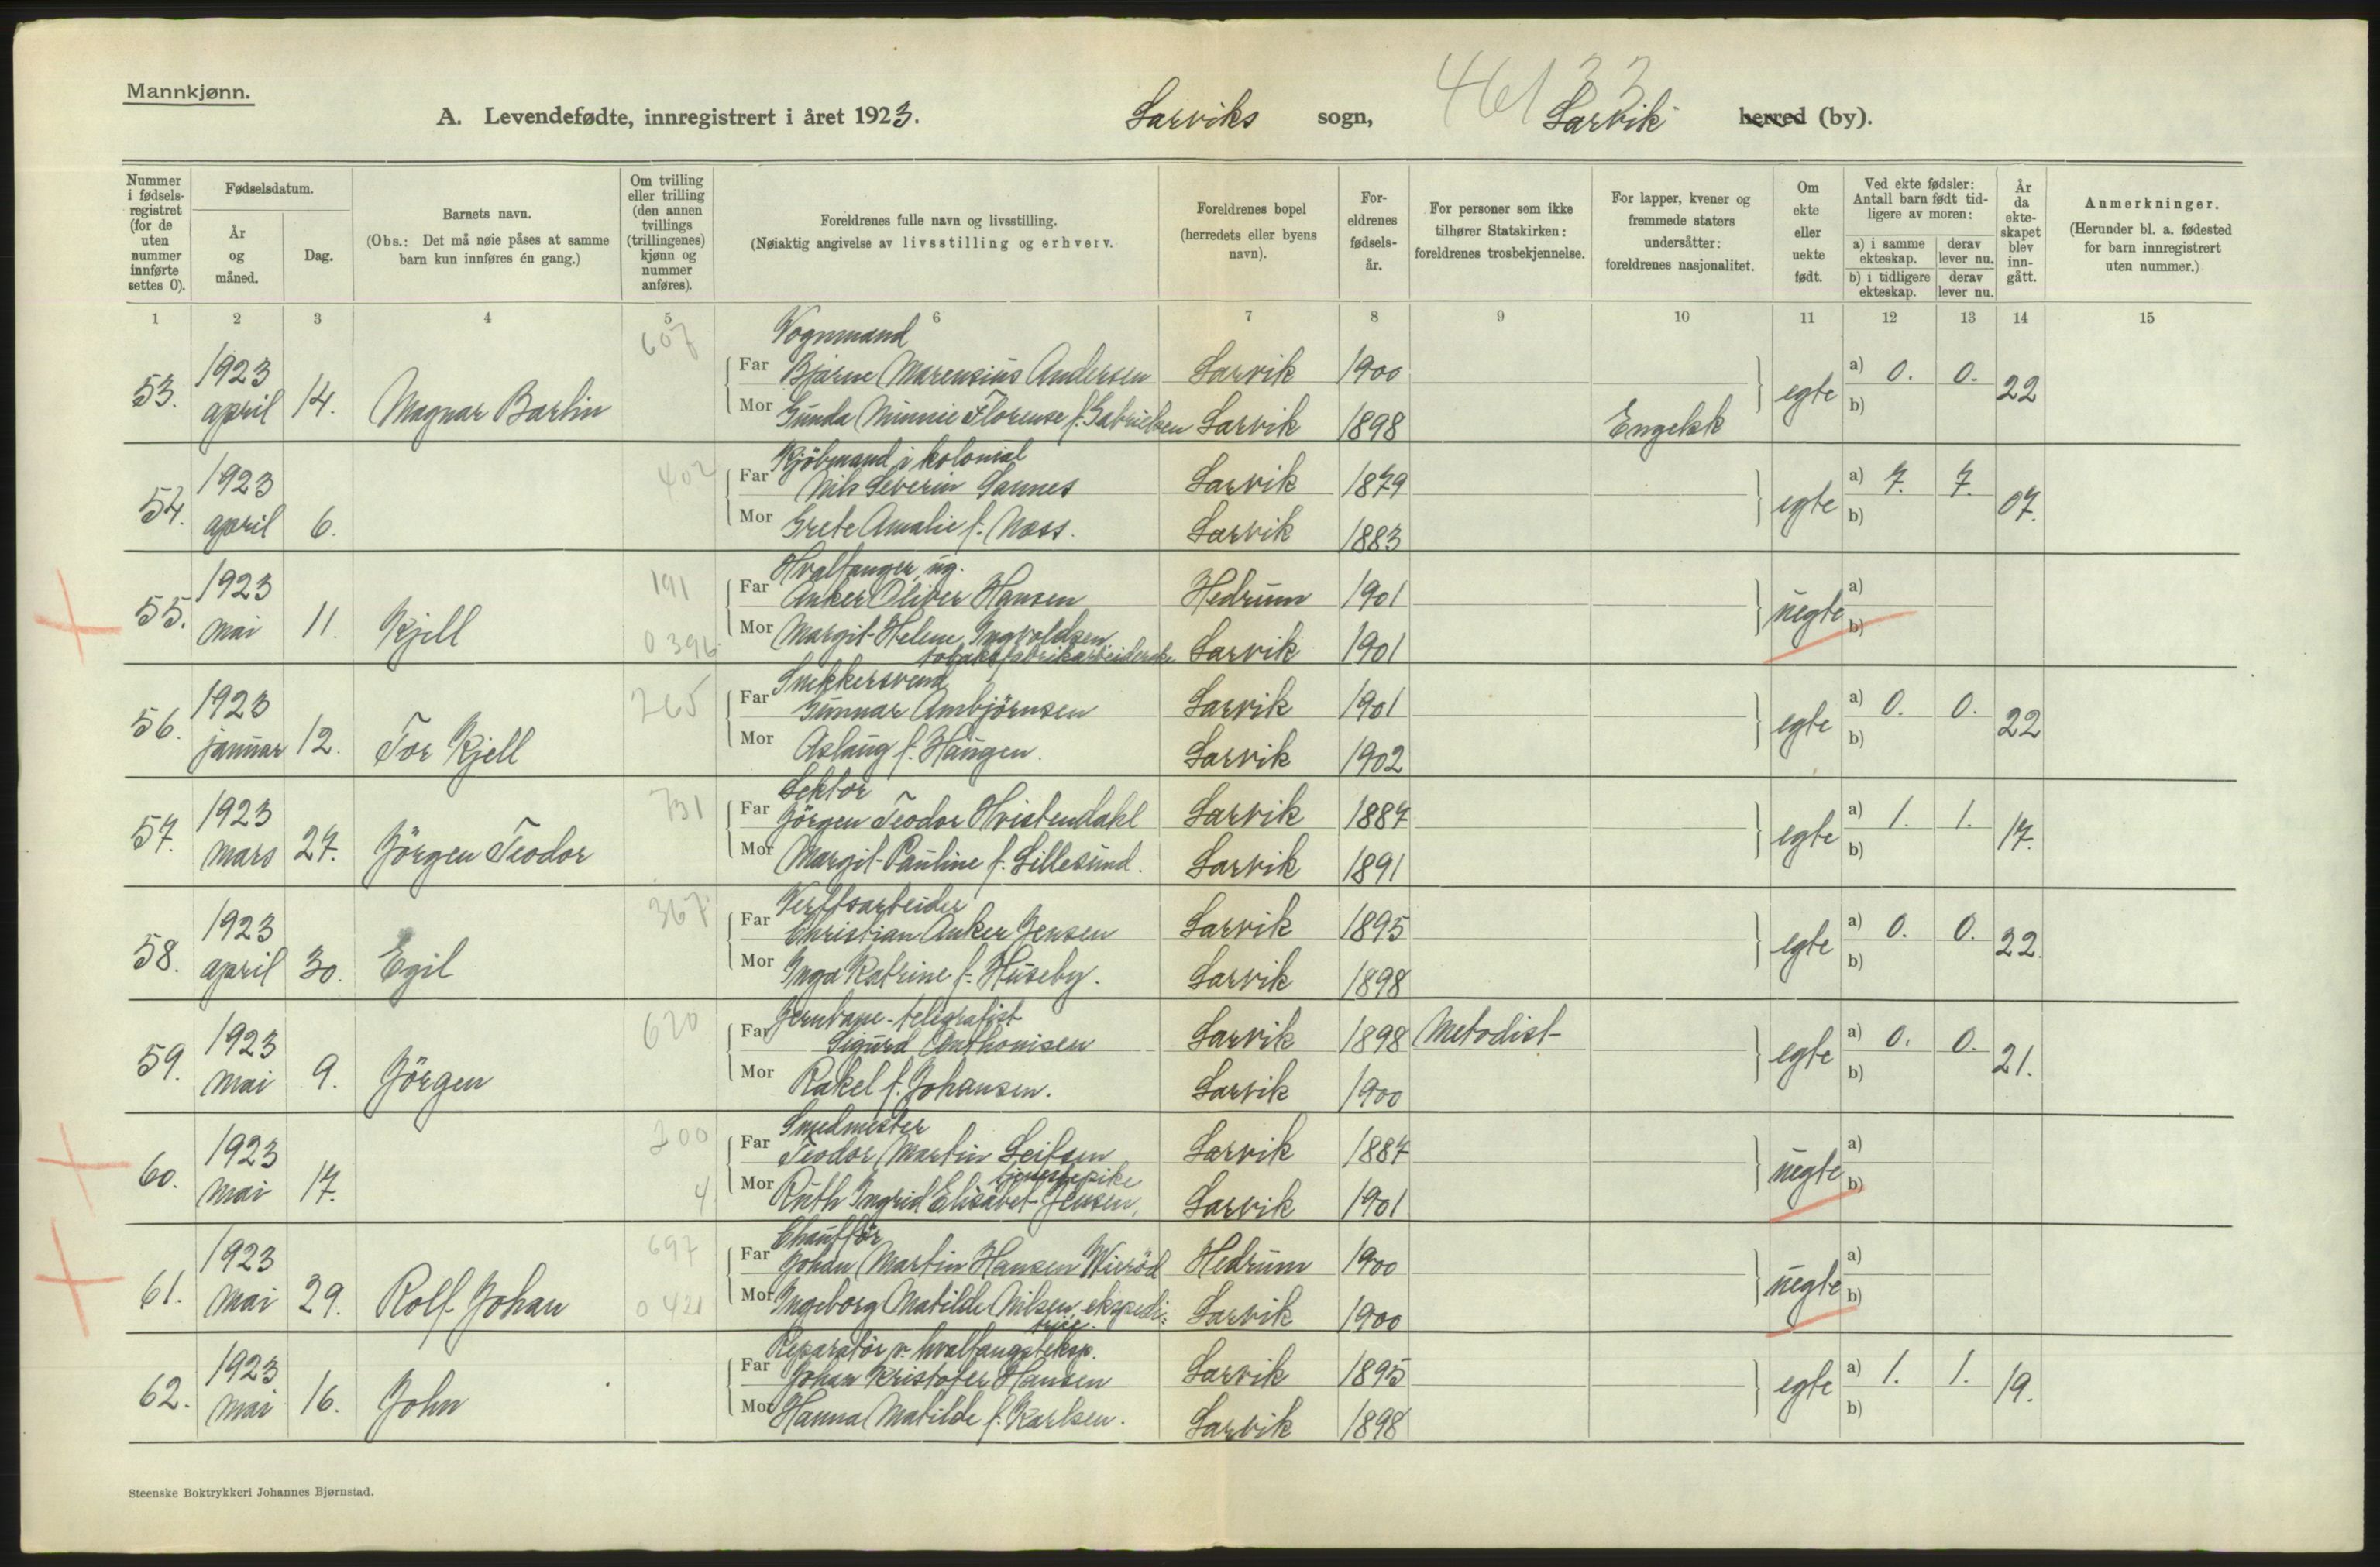 Mannkjønn.
46133
A. Levendefødte, innregistrert i året 1923. Larviks sogn, Larvik herred (by).
Nummer i fødselsregistret (for de uten nummer innførte settes 0).
Fødselsdatum.
År og måned.
Dag.
Barnets navn.
(Obs.: Det må nøie påses at samme barn kun innføres én gang.)
Om tvilling eller trilling (den annen tvillings (trillingenes) kjønn og nummer anføres).
Foreldrenes fulle navn og livsstilling.
(Nøiaktig angivelse av livsstilling og erhverv.
Foreldrenes bopel (herredets eller byens navn).
Foreldrenes fødselsår.
For personer som ikke tilhører Statskirken: foreldrenes trosbekjennelse.
For lapper, kvener og fremmede staters undersåtter: foreldrenes nasjonalitet.
Om ekte eller uekte født.
Ved ekte fødsler: Antall barn født tidligere av moren:
a) i samme ekteskap. derav lever nu.
b) i tidligere ekteskap. derav lever nu.
År da ekteskapet blev inngått.
Anmerkninger.
(Herunder bl. a. fødested for barn innregistrert uten nummer.)
1 2 3 4 5 6 7 8 9 10 11 12 13 14 15
607 Vognmand
53. 1923 april 14. Magnar Barlin
Far Bjarne Marensius Andersen Larvik 1900 egte a) 0. 0. 22
Mor Gunda Minnie Florense f. Gabrielsen Larvik 1898 Engelsk b)
402 Kjöbmand i kolonial
54. 1923 april 6.
Far Nils Severin Sannes Larvik 1879 egte a) 7. 7. 07.
Mor Grete Amalie f. Næss. Larvik 1883 b)
191 Hvalfanger, ug.
55. 1923 mai 11. Kjell
Far Anker Oliver Hansen Hedrum 1901 uegte a)
0396 Mor Margit Helene Ingvoldsen Larvik 1901 b)
tobaksfabrikarbeiderske
265 Snekkersvend
56. 1923 januar 12. Tor Kjell
Far Gunnar Ambjörnsen Larvik 1901 egte a) 0. 0. 22
Mor Aslaug f. Haugen. Larvik 1902 b)
731 Lektor
57. 1923 mars 27. Jörgen Teodor
Far Jörgen Teodor Hvistendahl Larvik 1887 egte a) 1. 1. 17.
Mor Margit Pauline f. Lillesund. Larvik 1891 b)
367 Verftsarbeider
58. 1923 april 30. Egil
Far Christian Anker Jensen Larvik 1895 egte a) 0. 0. 22.
Mor Inga Katrine f. Huseby. Larvik 1898 b)
620 Jernbane-telegrafist
59. 1923 mai 9. Jörgen
Far Sigurd Anthonisen Larvik 1898 Metodist egte a) 0. 0. 21.
Mor Rakel f. Johansen. Larvik 1900 b)
200 Smedmester
60. 1923 mai 17.
Far Teodor Martin Leifsen Larvik 1887 uegte a)
tjenestepike
4 Mor Ruth Ingrid Elisabet Jensen, Larvik 1901 b)
697 Chaufför
61. 1923 mai 29. Rolf Johan
Far Johan Martin Hansen Wieröd Hedrum 1900 uegte a)
0421 Mor Ingeborg Matilde Nilsen, ekspedi- Larvik 1900 b)
trice.
Reparatör v. hvalfangsteksp.
62. 1923 mai 16. John
Far Johan Kristofer Hansen Larvik 1895 egte a) 1. 1. 19.
Mor Hanna Matilde f. Karlsen. Larvik 1898 b)
Steenske Boktrykkeri Johannes Bjørnstad.